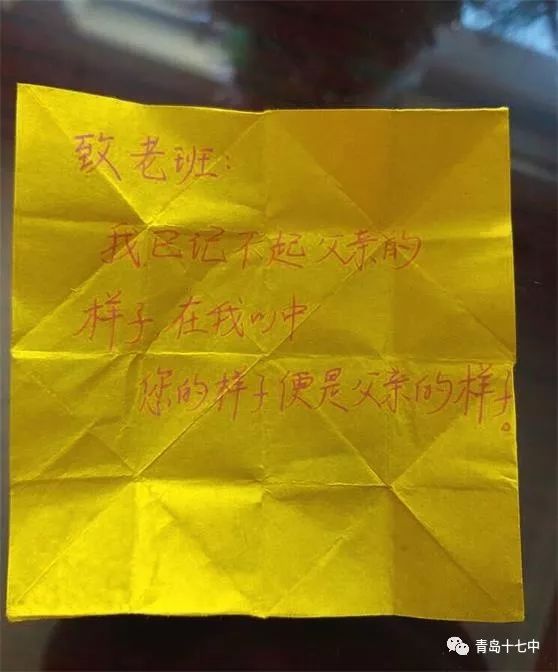 致老班：
我已记不起父亲的
样子,在我心中
您的样子便是父亲的样子。
青岛十七中